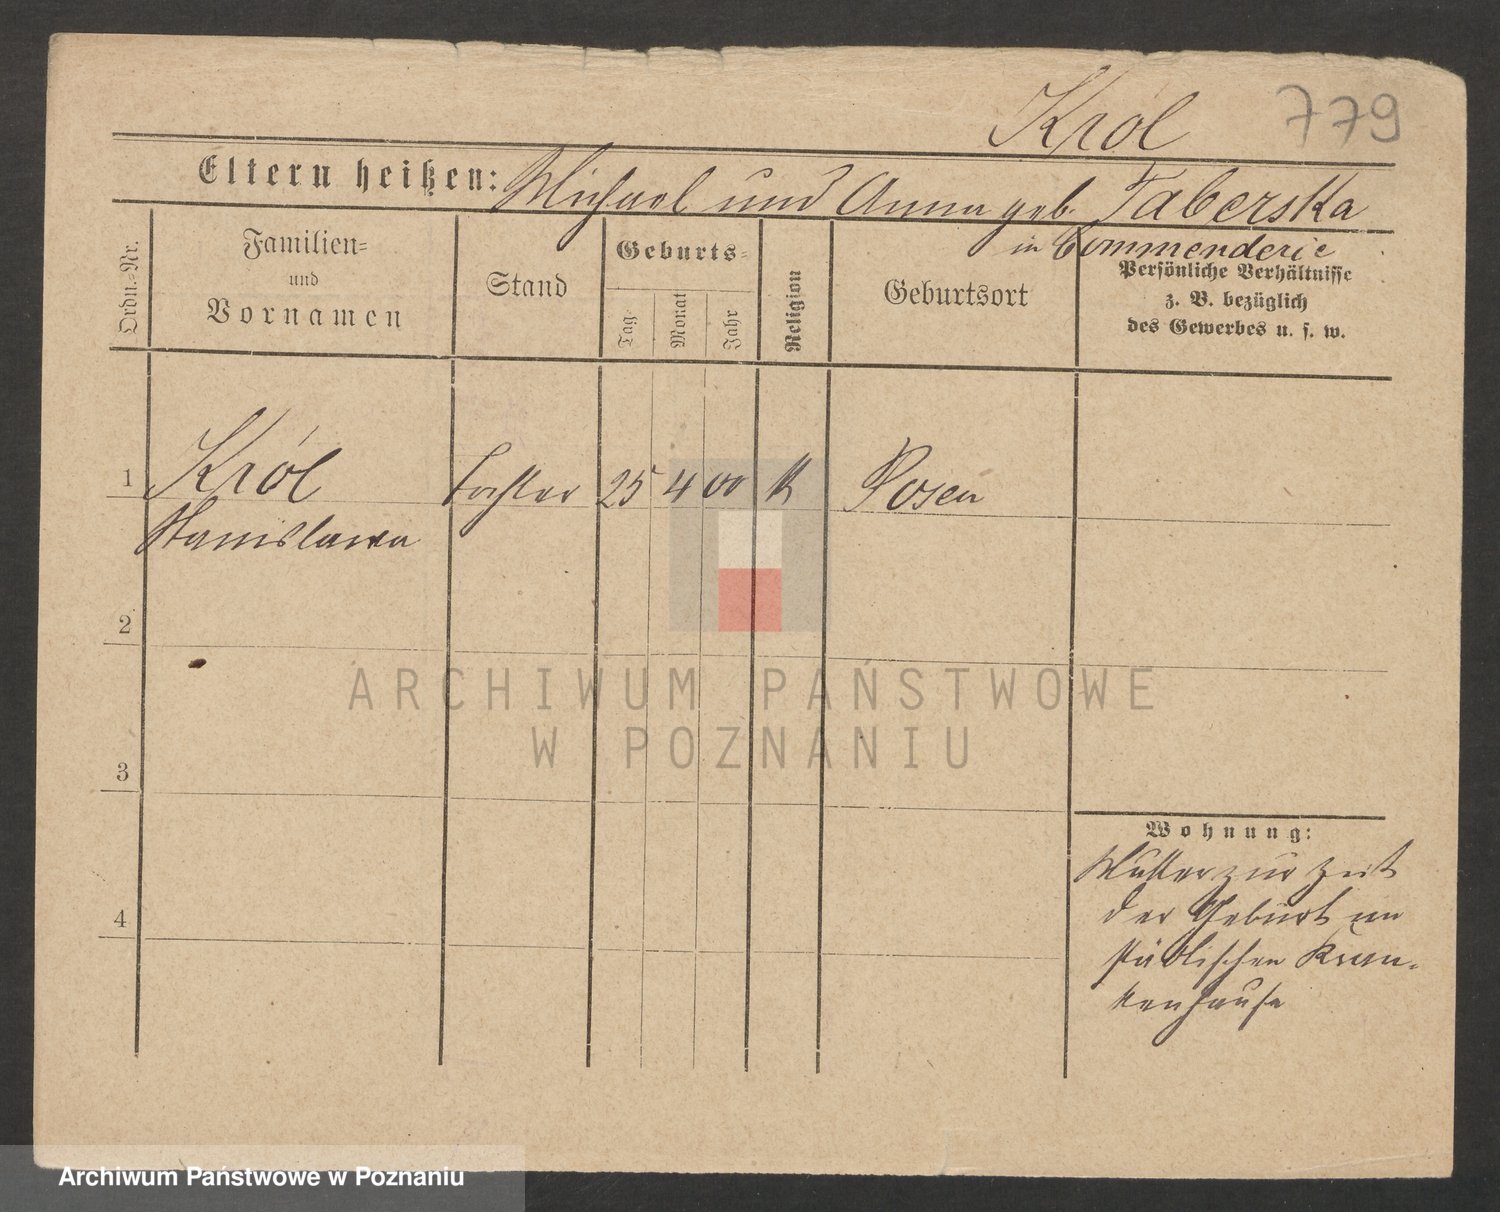 Król 779
Eltern heißen: Michael und Anna geb. Taberska
in Commenderie
Ordn.-Nr.
Familien=
und
Vornamen
Stand
Geburts=
Tag
Monat
Jahr
Religion
Geburtsort
Persönliche Verhältnisse
z. B. bezüglich
des Gewerbes u. s. w.
1 Król Tochter 25 4 00 K Posen
Stanislawa
2
3
4
Wohnung:
Mutter zur Zeit
der Geburt im
städtischen Kran-
kenhause
ARCHIWUM PAŃSTWOWE
W POZNANIU
Archiwum Państwowe w Poznaniu